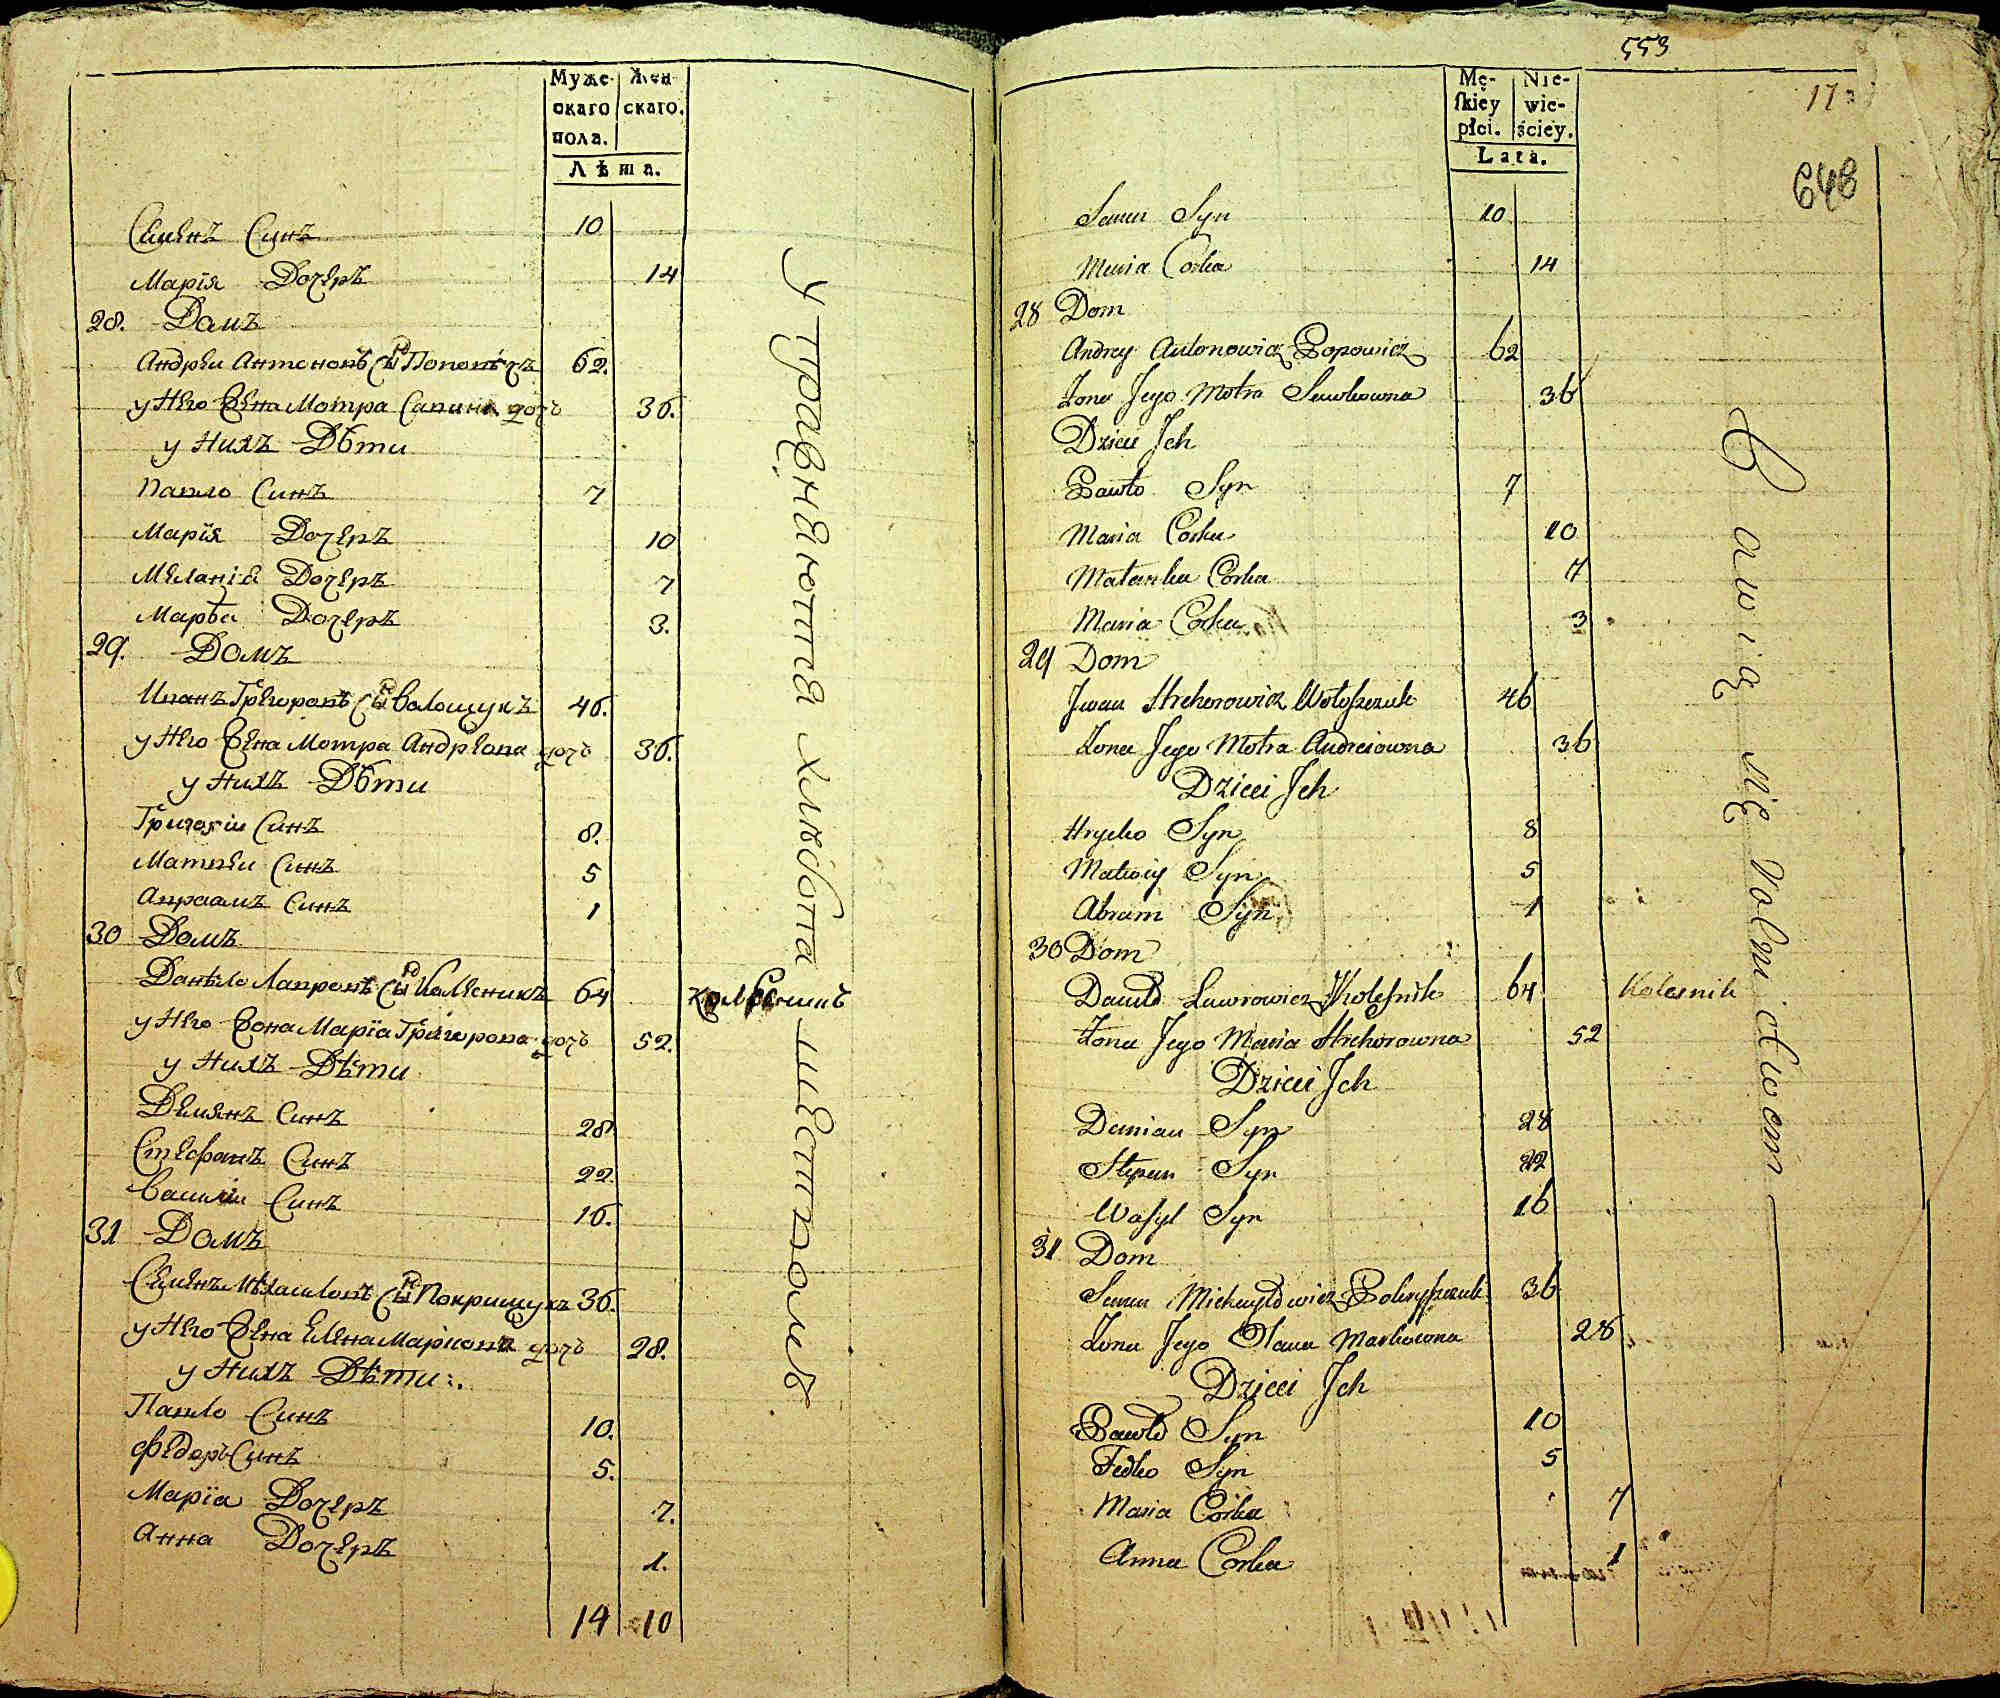 Муже- Жен-
скаго скаго.
пола.
Лѣта.
Семенъ Синъ 10
Марїя Дочеръ 14
28. Домъ
Андреи Антоновъ Сынъ Поповичъ 62.
у Него Жена Мотра Савина дочь 36.
у Нихъ Дѣти
Павло Синъ 7
Марїя Дочеръ 10
Меланїя Дочеръ 7
Марѳа Дочеръ 3.
29. Домъ
Иванъ Грегоровъ Сынъ Волощукъ 46.
у Него Жена Мотра Андреева дочь 36.
у Нихъ Дѣти
Григорїи Синъ 8.
Матвеи Синъ 5
Авраамъ Синъ 1
30 Домъ
Данѣло Лавровъ Сынъ Колесникъ 64 колесникъ
у Него Жона Марїа Григорова дочь 52.
у Нихъ Дѣти
Демянъ Синъ 28
Стефанъ Синъ 22.
Василїи Синъ 16.
31 Домъ
Семенъ Мѣхаиловъ Сынъ Покрищукъ 36.
у Него Жена Елена Маркова дочь 28.
у Нихъ Дѣти:.
Павло Синъ 10.
Федоръ Синъ 5.
Марїа Дочеръ 7.
Анна Дочеръ 1.
14 10
Упражняются хлѣбопашествомъ
553
17
648
Mę- Nie-
skiéy wie-
płci. ściéy.
Lata.
Semen Syn 10
Maria Corka 14
28 Dom
Andrey Antonowicz Popowicz 62
Żona Jego Motra Sawkowna 36
Dzieci Jch
Pawło Syn 7
Maria Corka 10
Małanka Corka 7
Maria Corka 3
29 Dom
Jwan Hrehorowicz Wołoszczuk 46
Żona Jego Motra Andreiowna 36
Dzieci Jch
Hryćko Syn 8
Matwiy Syn 5
Abram Syn 1
30 Dom
Daniło Ławrowicz Kolesnik 64 Kolesnik
Żona Jego Maria Hrehorowna 52
Dzieci Jch
Demian Syn 28
Stepan Syn 22
Wasyl Syn 16
31 Dom
Semen Michayłowicz Pokryszczuk 36
Żona Jego Olena Markowna 28
Dzieci Jch
Pawło Syn 10
Fedko Syn 5
Maria Corka 7
Anna Corka 1
Bawią się Rolnictwem